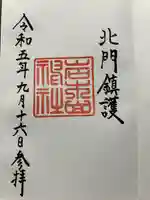 北門鎮護
岩木山神社
令和五年九月十六日参拝